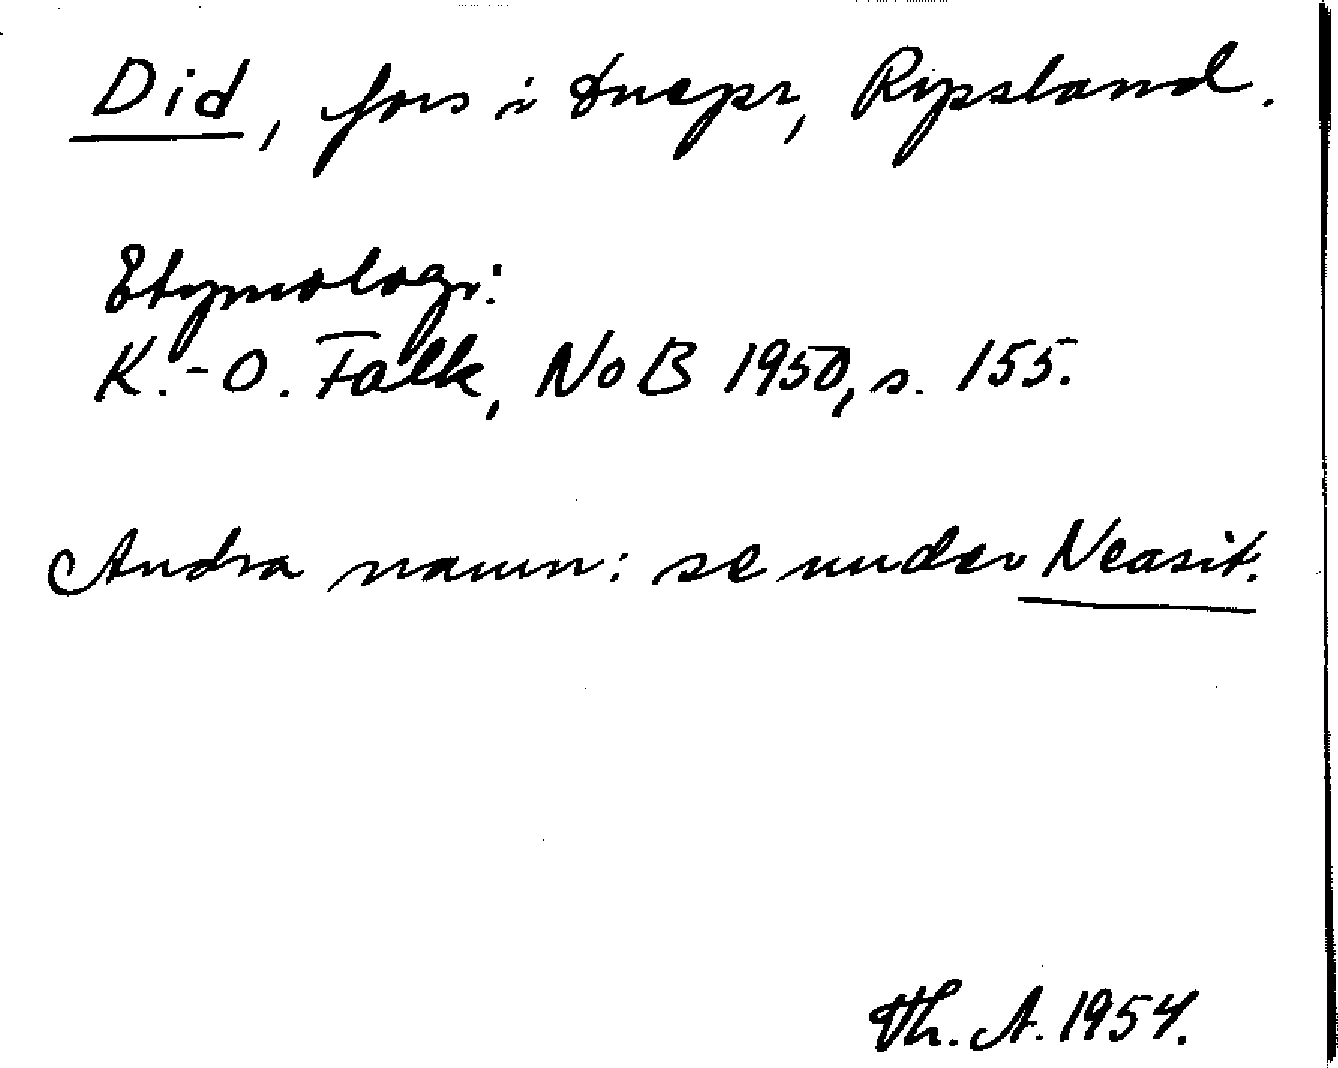 Did, fors i Dnepr, Ryssland.
Etymologi:
K.-O. Falk, NoB 1950, s. 155.
Andra namn: se under Neasit.
Th. A. 1954.